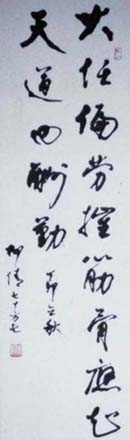 大任偏劳摧筋骨应知
天道也酬勤
丁卯立秋
柳倩七十有七